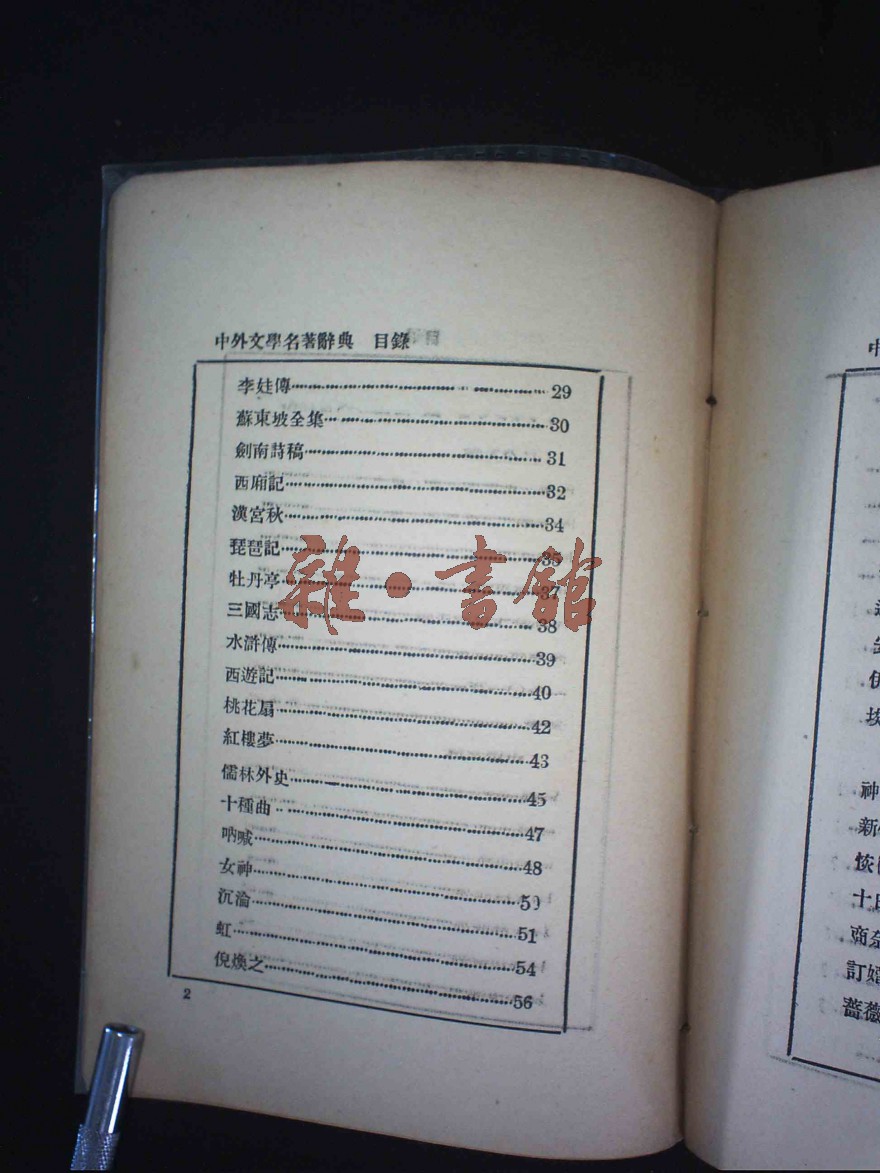 中外文學名著辭典 目錄
李娃傳 29
蘇東坡全集 30
劍南詩稿 31
西廂記 32
漢宮秋 34
琵琶記 35
牡丹亭 37
三國志 38
水滸傳 39
西遊記 40
桃花扇 42
紅樓夢 43
儒林外史 45
十種曲 47
吶喊 48
女神 50
沉淪 51
虹 54
倪煥之 56
2
雜·書館
神
新
十日
訂婚
薔薇